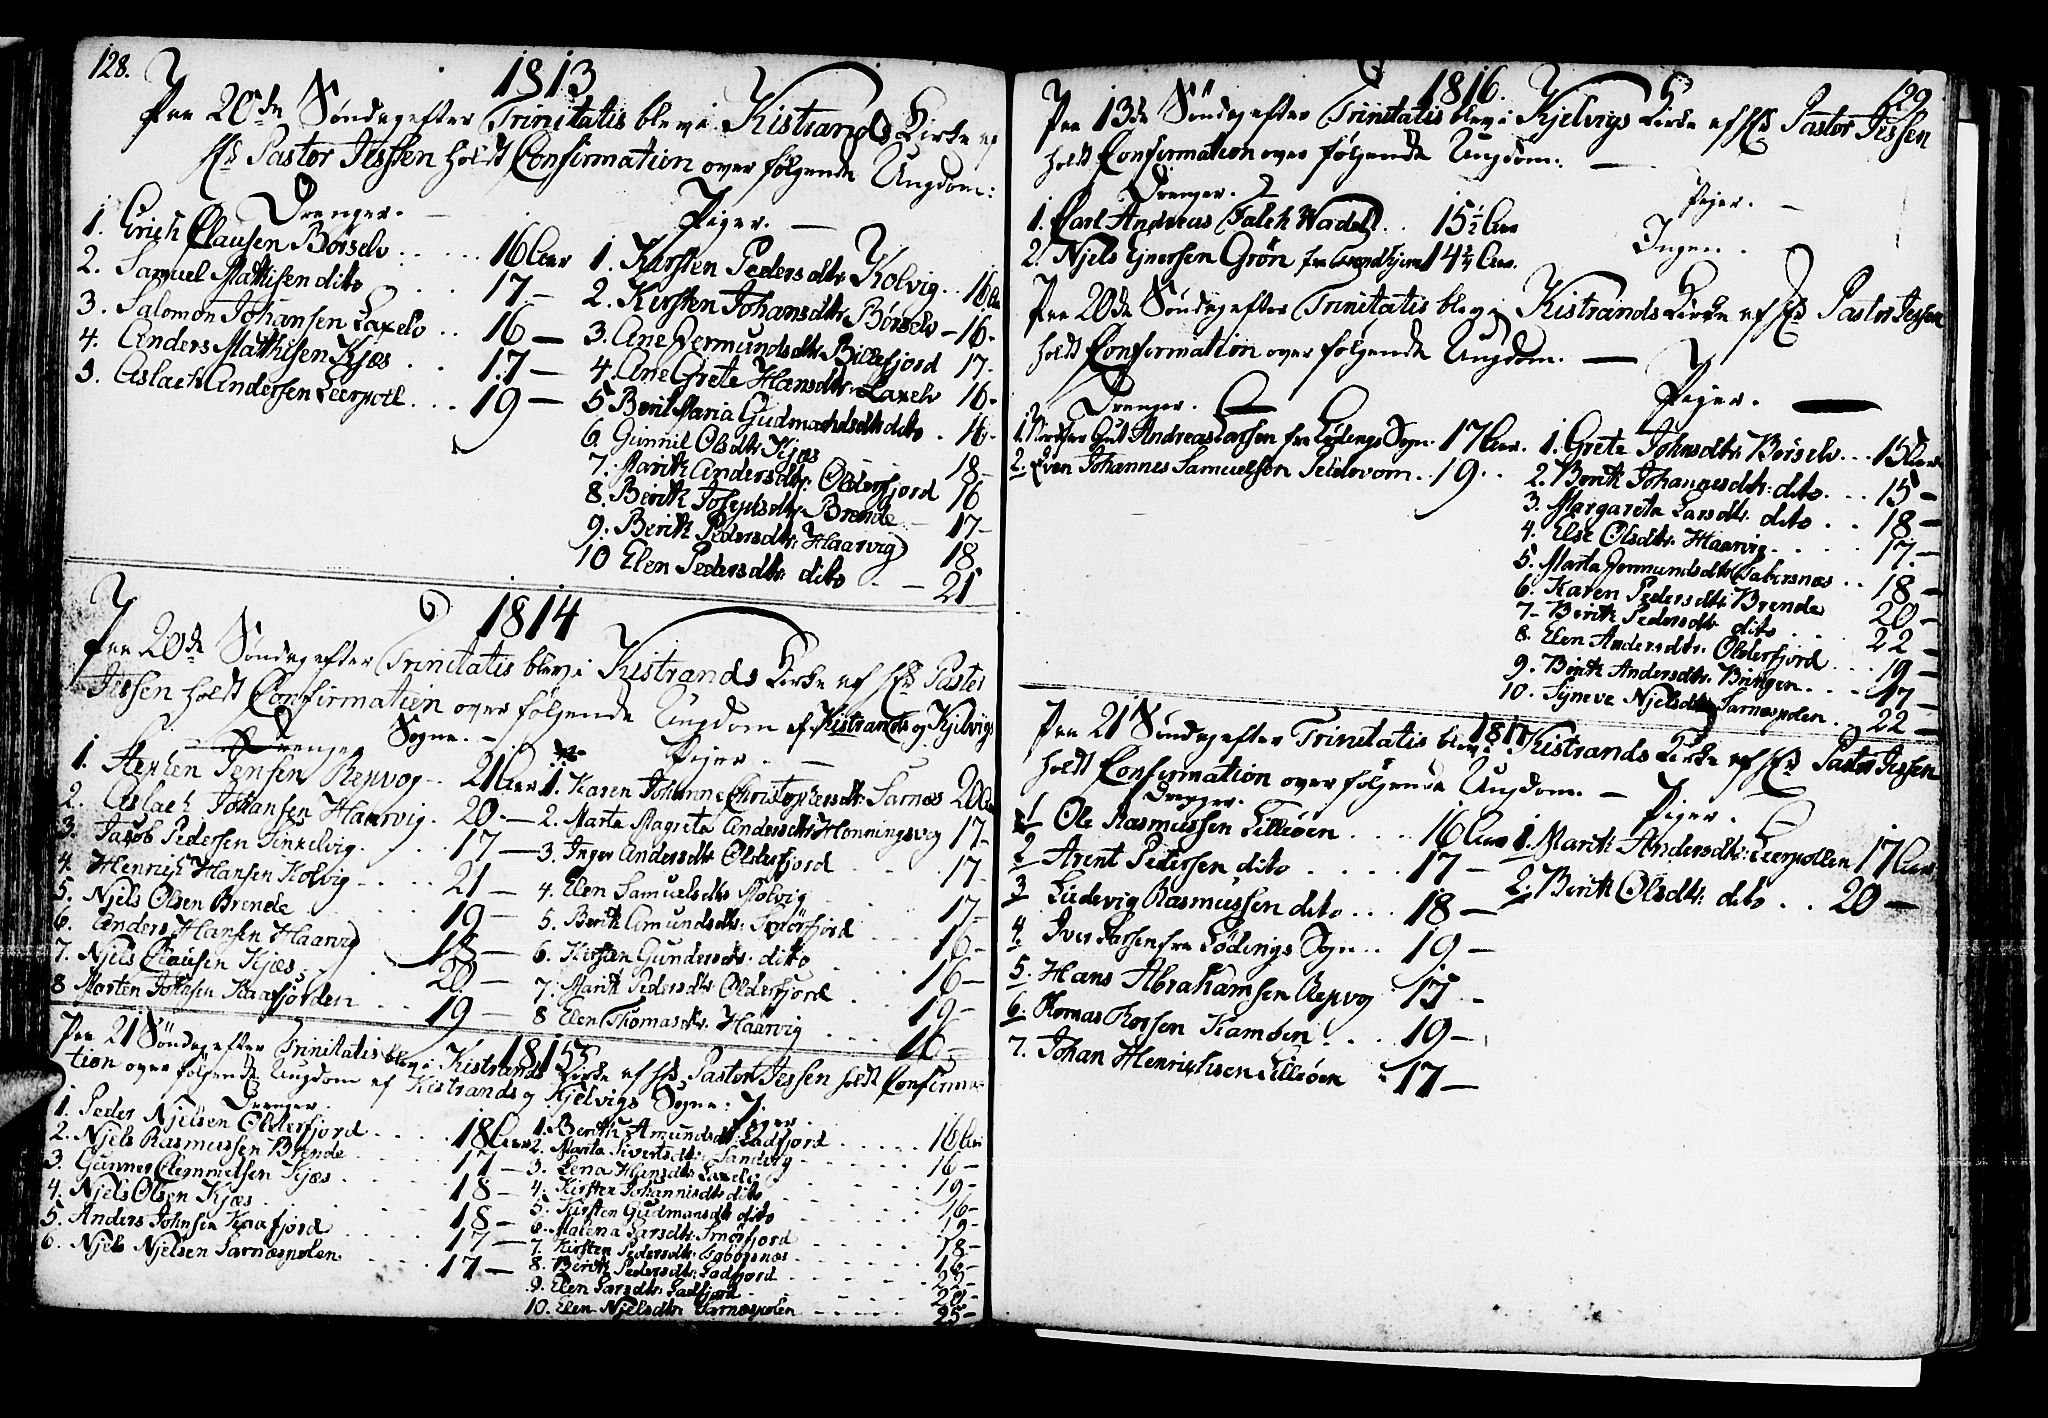 128.
1813
Paa 20de Søndag efter Trinitatis blev i Kistrands Kirke af
Hr Pastor Jessen holdt Confirmation over følgende Ungdom:
Drenger.
1. Erich Clausen Børselv 16 Aar
2. Samuel Mathisen dito 17 —
3. Salomon Johansen Laxelv 16 —
4. Anders Mathisen Kjæs 17 —
5. Aslach Andersen Leerpoll 19 —
Piger.
1. Kirsten Pedersdtr Kolvig 16 Aar
2. Kirsten Johansdtr Børselv 16 -
3. Ane Germundsdtr Billefjord 17 -
4. Ane Grete Hansdtr Laxelv 16 -
5 Berit Maria Gudmandsdtr dito 16 -
6. Gunnil Olsdtr Kjæs 18 -
7. Marith Andersdtr: Olderfjord 16
8. Berith Josephsdtr Brende 17 -
9. Berith Pedersdtr: Haarvig 18
10 Elen Pedersdtr dito 21
1814
Paa 20de Søndag efter Trinitatis blev i Kistrands Kirke af Hr Pastor
Jessen holdt Confirmation over følgende Ungdom af Kistrands og Kjelvigs
Sogne.
Drenge
1. Stephen Jensen Repvog 21 Aar
2. Aslach Johansen Haarvig 20 —
3. Jacob Pedersen Finkelvig 17 —
4. Henrich Hansen Kolvig 21 —
5. Njels Olsen Brende 19 —
6. Anders Hansen Haarvig 18 —
7. Njels Clausen Kjæs 20 —
8 Morten Johnsen Kaafjorden 19 —
Piger.
1. Karen Johanne Christophersdtr: Sarnæs 20 Aar
2. Marta Magreta Andersdtr Honningsvog 17 -
3. Inger Andersdtr Olderfjord 17 -
4. Elen Samuelsdtr Molvig 17 -
5. Berith Amundsdtr: Smørfjord 16 -
6. Kirsten Gundersdtr: dito 16 -
7. Marith Pedersdtr Olderfjord 19 -
8 Elen Thomasdtr: Haarvig 16 -
1815
Paa 21 Søndag efter Trinitatis blev i Kistrands Kirke af Hr Pastor Jessen holdt Confirma-
tion over følgende Ungdom af Kistrands og Kjelvigs Sogne:
Drenger.
1. Peder Njelsen Olderfjord 18 Aar
2. Njels Rasmussen Brende 17 —
3. Gunner Clemmetsen Kjæs 18 —
4. Njels Olsen Kjæs 18 —
5. Anders Johnsen Kaafjord 17 —
6. Njels Njelsen Sarnæspolen 17 —
Piger
1. Berith Amundsdtr: Ladfjord 16 Aar
2. Marta Sivertsdtr: Sandvig 16 -
3. Lena Hansdtr Laxelv 19 -
4. Kirsten Johannisdtr dito 16 -
5. Kirsten Gudmansdtr dito 19 -
6. Malena Larsdtr: Smørfjord 18 -
7. Kirsten Pedersdtr: 16 -
8. Berith Pedersdtr: Ladfjord 22 -
9. Elen Larsdtr: Ladfjord 20 -
10. Elen Njelsdtr Sarnæspolen 25 -
129
1816.
Paa 13de Søndag efter Trinitatis blev i Kjelvigs Kirke af Hr Pastor Jessen
holdt Confirmation over følgende Ungdom: —
Drenger.
1. Carl Andreas Falch Wadel 15½ Aar
2. Njels Ejnersen Grøn fra Trondhjem 14¼ Aar.
Piger. —
Ingen.
Paa 20de Søndag efter Trinitatis blev i Kistrands Kirke af Hr Pastor Jessen
holdt Confirmation over følgende Ungdom. —
Drenger.
1. Andreas Larsen fra Lødings Sogn 17 Aar.
2. Even Johannes Samuelsen 19.
Piger.
1. Grete Johnsdtr: Børselv 15 Aar
2. Berith Johannesdtr: dito 15 —
3. Margareta Larsdtr: dito 18 —
4. Else Olsdtr: Haarvig 17. —
5. Marta Germundsdtr: 18 —
6. Karen Pedersdtr Brende 20 —
7. Berith Pedersdtr dito 22 —
8. Elen Andersdtr: Olderfjord 19 —
9. Berith Andersdtr: Bringen 17 —
10. Syneve Njelsdtr Sarnæspolen 22 —
1817
Paa 21 Søndag efter Trinitatis blev i Kistrands Kirke af Hr Pastor Jessen
holdt Confirmation over følgende Ungdom. —
Drenger.
1 Ole Rasmussen Lilleøen 16 Aar
2 Arent Petersen dito 17 —
3 Ludevig Rasmussen dito 18 —
4. Iver Larsen fra Lødings Sogn 19 —
5. Hans Abrahamsen Repvog 17 -
6. Thomas Thorsen Kamøen 19 —
7. Johan Henrichsen Lilleøen 17 —
Piger.
1. Marith Andersdtr: Leerpollen 17 Aar
2. Berith Olsdtr: dito 20 —